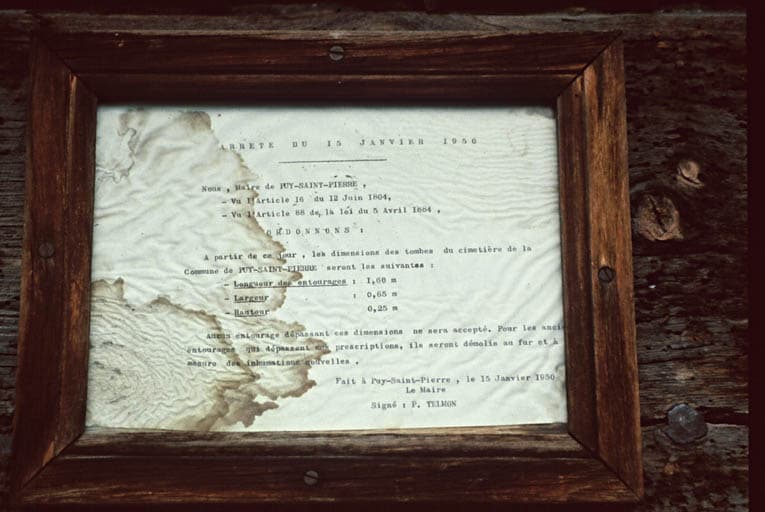 ARRETE DU 15 JANVIER 1950
Nous , Maire de PUY-SAINT-PIERRE ,
- Vu l'Article 16 du 12 Juin 1804,
- Vu l'Article 88 de la loi du 5 Avril 1884 ,
ORDONNONS :
A partir de ce jour , les dimensions des tombes du cimetière de la
Commune de PUY-SAINT-PIERRE seront les suivantes :
- Longueur des entourages : 1,60 m
- Largeur : 0,65 m
- Hauteur 0,25 m
Aucun entourage dépassant ces dimensions ne sera accepté. Pour les anci
entourages qui dépassent ces prescriptions, ils seront démolis au fur et à
mesure des inhumations nouvelles .
Fait à Puy-Saint-Pierre , le 15 Janvier 1950
Le Maire
Signé : P. TELMON